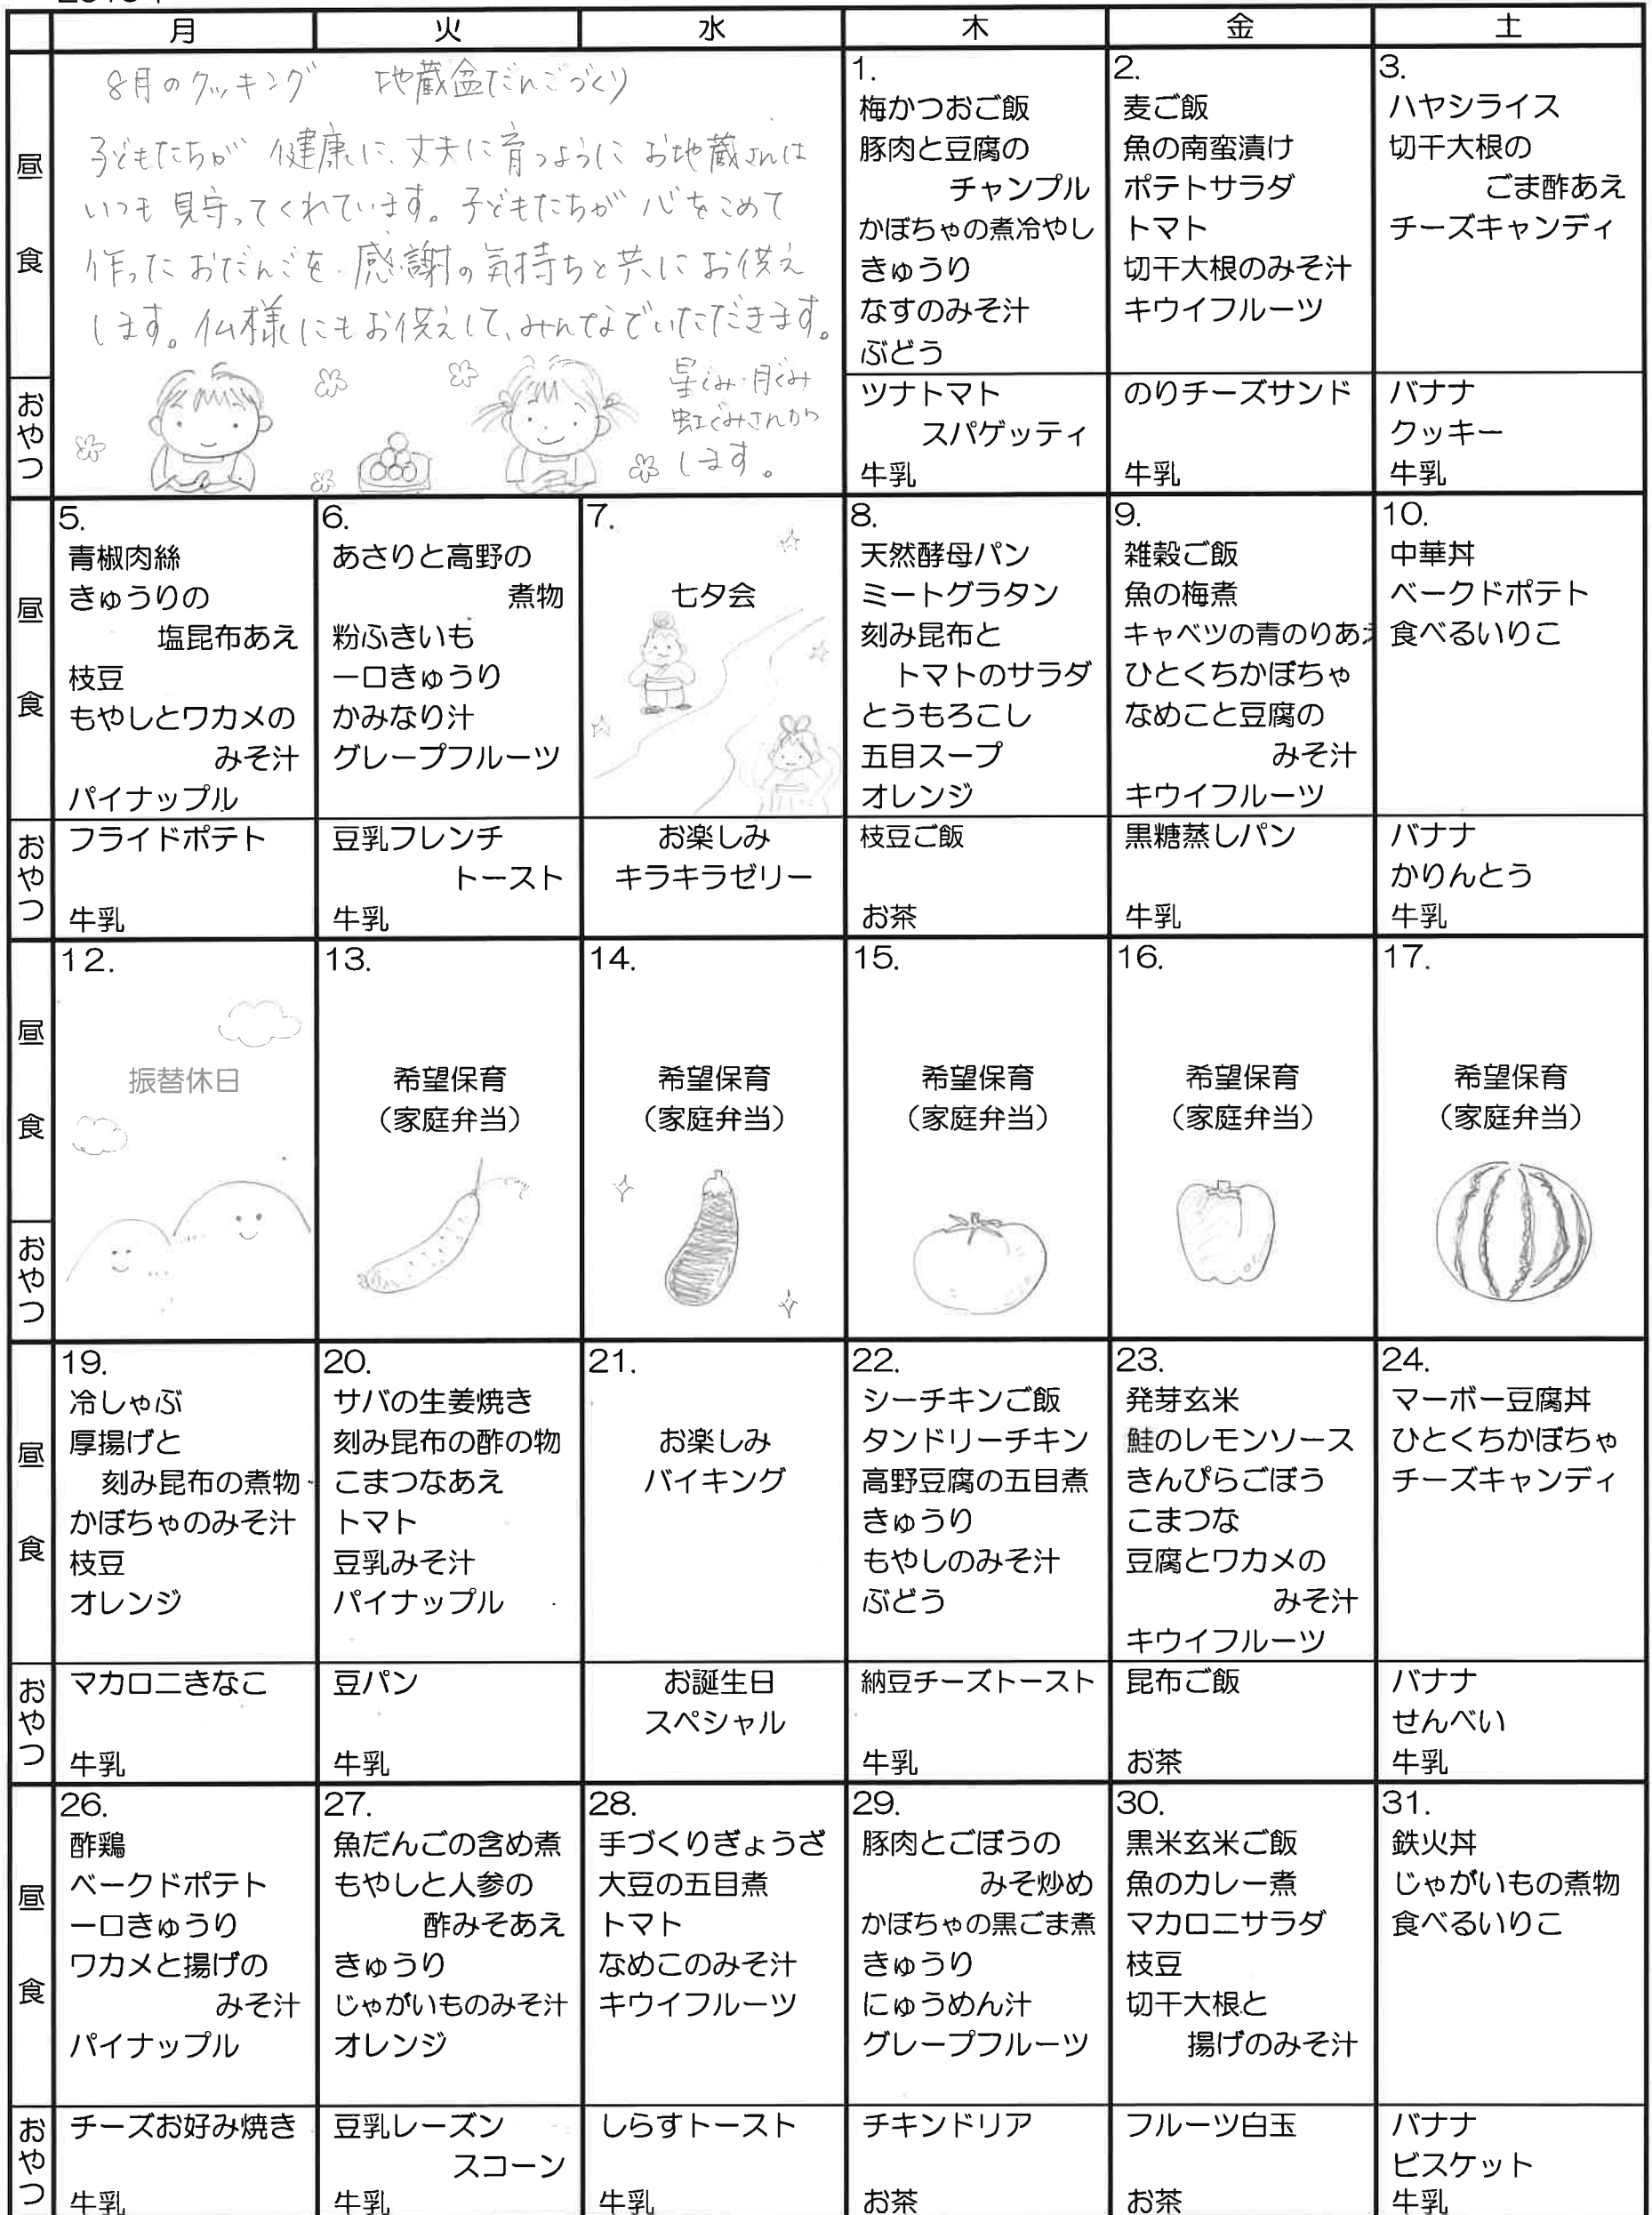 月 火 水 木 金 土
昼食
8月のクッキング 地蔵盆だんごづくり
子どもたちが 健康に、丈夫に育つように お地蔵さんは
いつも 見守ってくれています。子どもたちが 心をこめて
作った おだんごを 感謝の気持ちと共に お供え
します。仏様にもお供えして、みんなでいただきます。
星ぐみ・月ぐみ
虹ぐみさんから
します。
1.
梅かつおご飯
豚肉と豆腐の
チャンプル
かぼちゃの煮冷やし
きゅうり
なすのみそ汁
ぶどう
2.
麦ご飯
魚の南蛮漬け
ポテトサラダ
トマト
切干大根のみそ汁
キウイフルーツ
3.
ハヤシライス
切干大根の
ごま酢あえ
チーズキャンディ
おやつ
ツナトマト
スパゲッティ
牛乳
のりチーズサンド
牛乳
バナナ
クッキー
牛乳
昼食
5.
青椒肉絲
きゅうりの
塩昆布あえ
枝豆
もやしとワカメの
みそ汁
パイナップル
6.
あさりと高野の
煮物
粉ふきいも
一口きゅうり
かみなり汁
グレープフルーツ
7.
七夕会
8.
天然酵母パン
ミートグラタン
刻み昆布と
トマトのサラダ
とうもろこし
五目スープ
オレンジ
9.
雑穀ご飯
魚の梅煮
キャベツの青のりあえ
ひとくちかぼちゃ
なめこと豆腐の
みそ汁
キウイフルーツ
10.
中華丼
ベークドポテト
食べるいりこ
おやつ
フライドポテト
牛乳
豆乳フレンチ
トースト
牛乳
お楽しみ
キラキラゼリー
枝豆ご飯
お茶
黒糖蒸しパン
牛乳
バナナ
かりんとう
牛乳
昼食
12.
振替休日
13.
希望保育
（家庭弁当）
14.
希望保育
（家庭弁当）
15.
希望保育
（家庭弁当）
16.
希望保育
（家庭弁当）
17.
希望保育
（家庭弁当）
おやつ
昼食
19.
冷しゃぶ
厚揚げと
刻み昆布の煮物
かぼちゃのみそ汁
枝豆
オレンジ
20.
サバの生姜焼き
刻み昆布の酢の物
こまつなあえ
トマト
豆乳みそ汁
パイナップル
21.
お楽しみ
バイキング
22.
シーチキンご飯
タンドリーチキン
高野豆腐の五目煮
きゅうり
もやしのみそ汁
ぶどう
23.
発芽玄米
鮭のレモンソース
きんぴらごぼう
こまつな
豆腐とワカメの
みそ汁
キウイフルーツ
24.
マーボー豆腐丼
ひとくちかぼちゃ
チーズキャンディ
おやつ
マカロニきなこ
牛乳
豆パン
牛乳
お誕生日
スペシャル
納豆チーズトースト
牛乳
昆布ご飯
お茶
バナナ
せんべい
牛乳
昼食
26.
酢鶏
ベークドポテト
一口きゅうり
ワカメと揚げの
みそ汁
パイナップル
27.
魚だんごの含め煮
もやしと人参の
酢みそあえ
きゅうり
じゃがいものみそ汁
オレンジ
28.
手づくりぎょうざ
大豆の五目煮
トマト
なめこのみそ汁
キウイフルーツ
29.
豚肉とごぼうの
みそ炒め
かぼちゃの黒ごま煮
きゅうり
にゅうめん汁
グレープフルーツ
30.
黒米玄米ご飯
魚のカレー煮
マカロニサラダ
枝豆
切干大根と
揚げのみそ汁
31.
鉄火丼
じゃがいもの煮物
食べるいりこ
おやつ
チーズお好み焼き
牛乳
豆乳レーズン
スコーン
牛乳
しらすトースト
牛乳
チキンドリア
お茶
フルーツ白玉
お茶
バナナ
ビスケット
牛乳